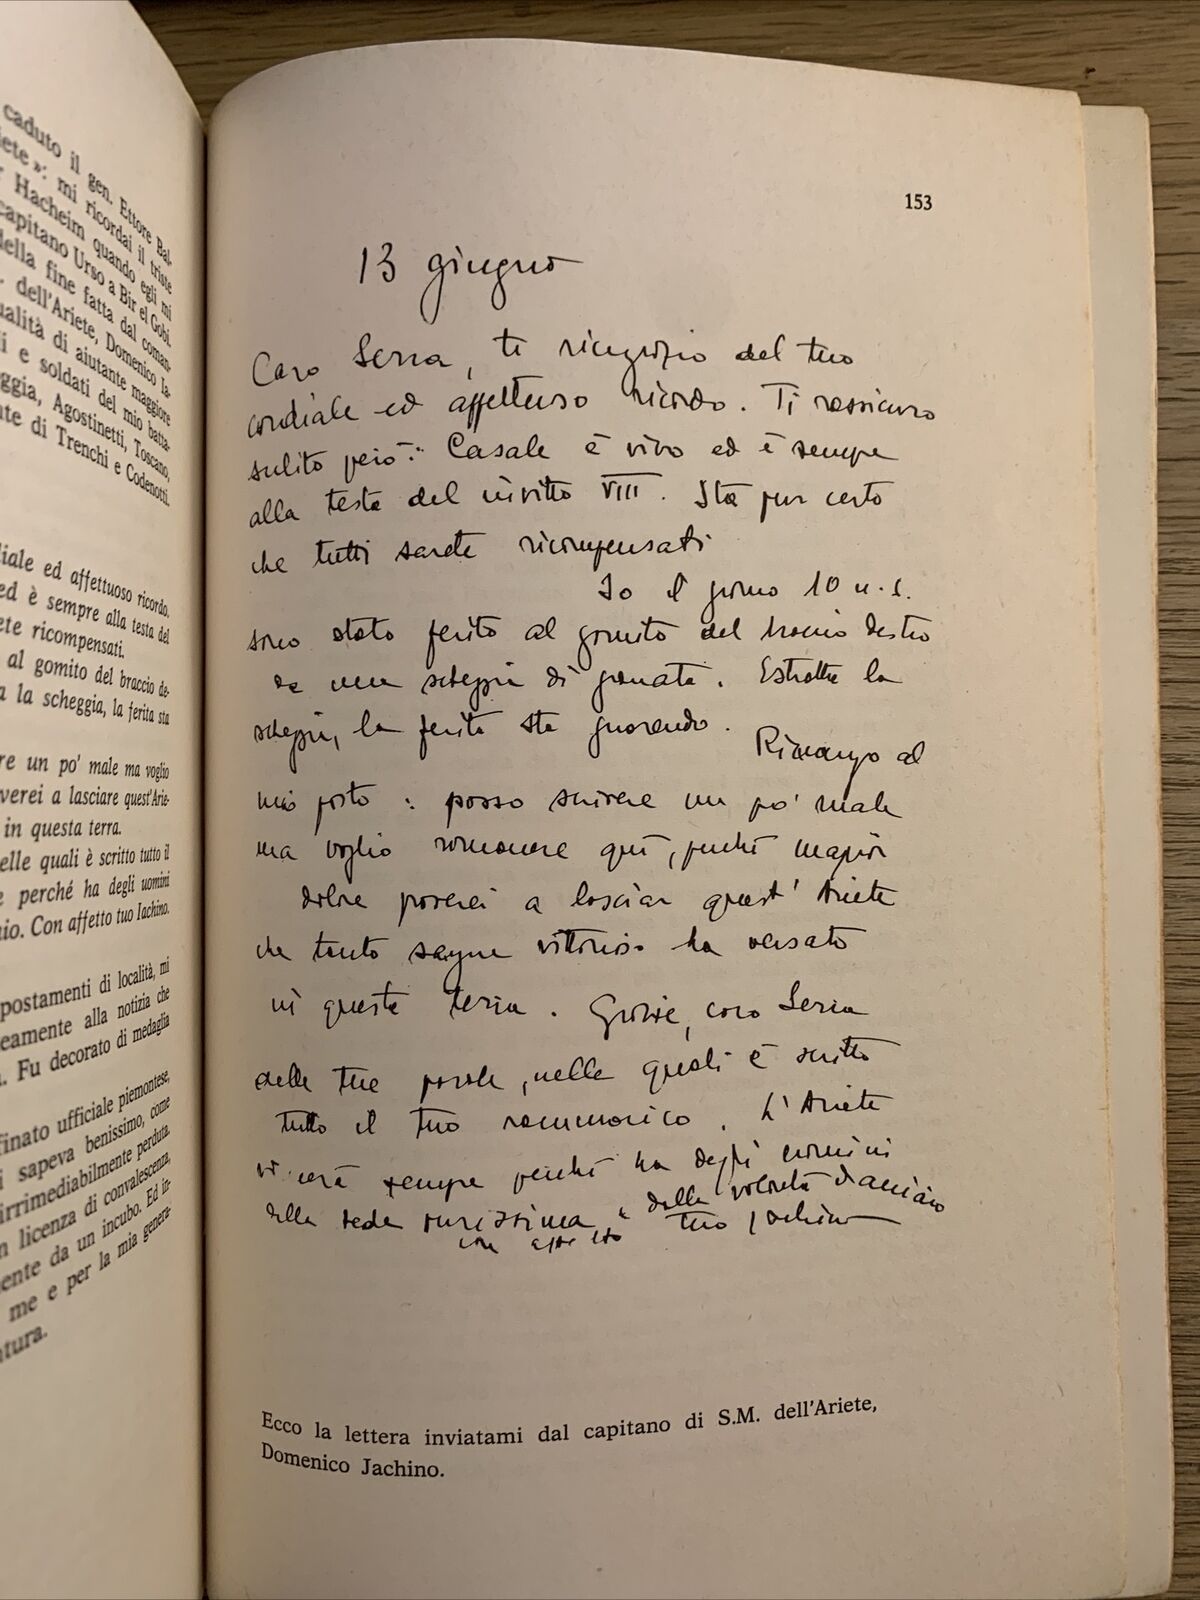 caduto il gen. Ettore Bal-
iete»: mi ricordai il triste
r Hacheim quando egli mi
capitano Urso a Bir el Gobi.
della fine fatta dal coman-
dell'Ariete, Domenico Ia-
ualità di aiutante maggiore
i e soldati del mio batta-
ggia, Agostinetti, Toscano,
te di Trenchi e Codenotti.
diale ed affettuoso ricordo.
ed è sempre alla testa del
ete ricompensati.
al gomito del braccio de-
a la scheggia, la ferita sta
re un po' male ma voglio
verei a lasciare quest'Arie-
in questa terra.
elle quali è scritto tutto il
e perché ha degli uomini
nio. Con affetto tuo Iachino.
postamenti di località, mi
eamente alla notizia che
. Fu decorato di medaglia
finato ufficiale piemontese,
i sapeva benissimo, come
irrimediabilmente perduta.
n licenza di convalescenza,
ente da un incubo. Ed in-
me e per la mia genera-
ntura.
153
13 giugno
Caro Serra, ti ringrazio del tuo
cordiale ed affettuoso ricordo. Ti rassicuro
subito però: Casale è vivo ed è sempre
alla testa del invitto VIII. Sta pur certo
che tutti sarete ricompensati
Io il giorno 10 u.s.
sono stato ferito al gomito del braccio destro
da una scheggia di granata. Estratta la
scheggia, la ferita sta guarendo.
Rimango al
mio posto: posso scrivere un po' male
ma voglio rimanere qui, perché maggior
dolore proverei a lasciar quest'Ariete
che tanto sangue vittorioso ha versato
in questa terra. Grazie, caro Serra
delle tue parole, nelle quali è scritto
tutto il tuo rammarico. L'Ariete
vincerà sempre perché ha degli uomini
dalla fede purissima e dalla volontà d'acciaio
con affetto tuo Jachino
Ecco la lettera inviatami dal capitano di S.M. dell'Ariete,
Domenico Jachino.